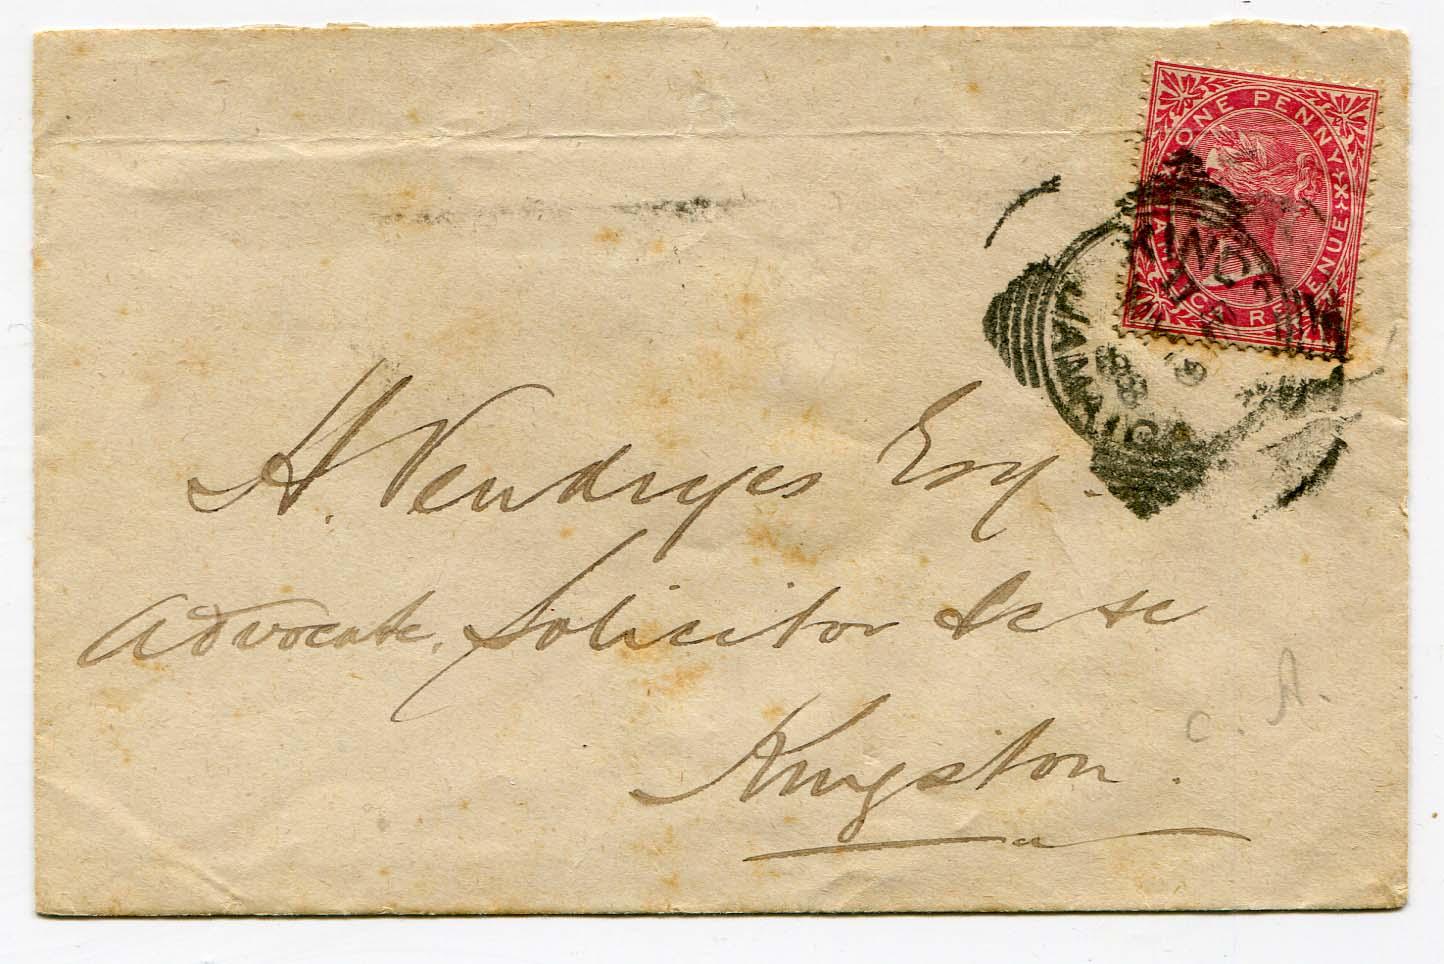 ONE PENNY
JAMAICA REVENUE
JAMAICA
H. Vendryes Esq.
Advocate, Solicitor &c &c
Kingston.
C. A.